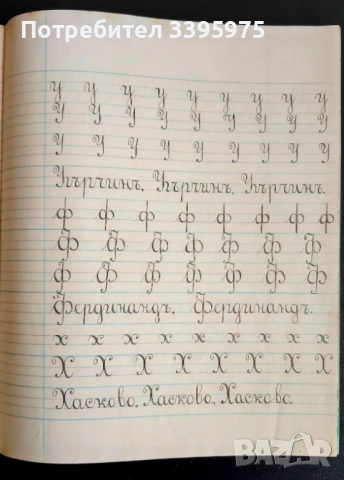 Потребител 3395975
у у у у у у у у у
У У У У У У У У
У У У У У У У У
Угърчинъ, Угърчинъ, Угърчинъ.
ф ф ф ф ф ф ф ф
Ф Ф Ф Ф Ф Ф Ф
Ф Ф Ф Ф Ф Ф Ф
Фердинандъ, Фердинандъ.
х х х х х х х х х
Х Х Х Х Х Х Х Х
Хасково, Хасково, Хасково.
BAZAR